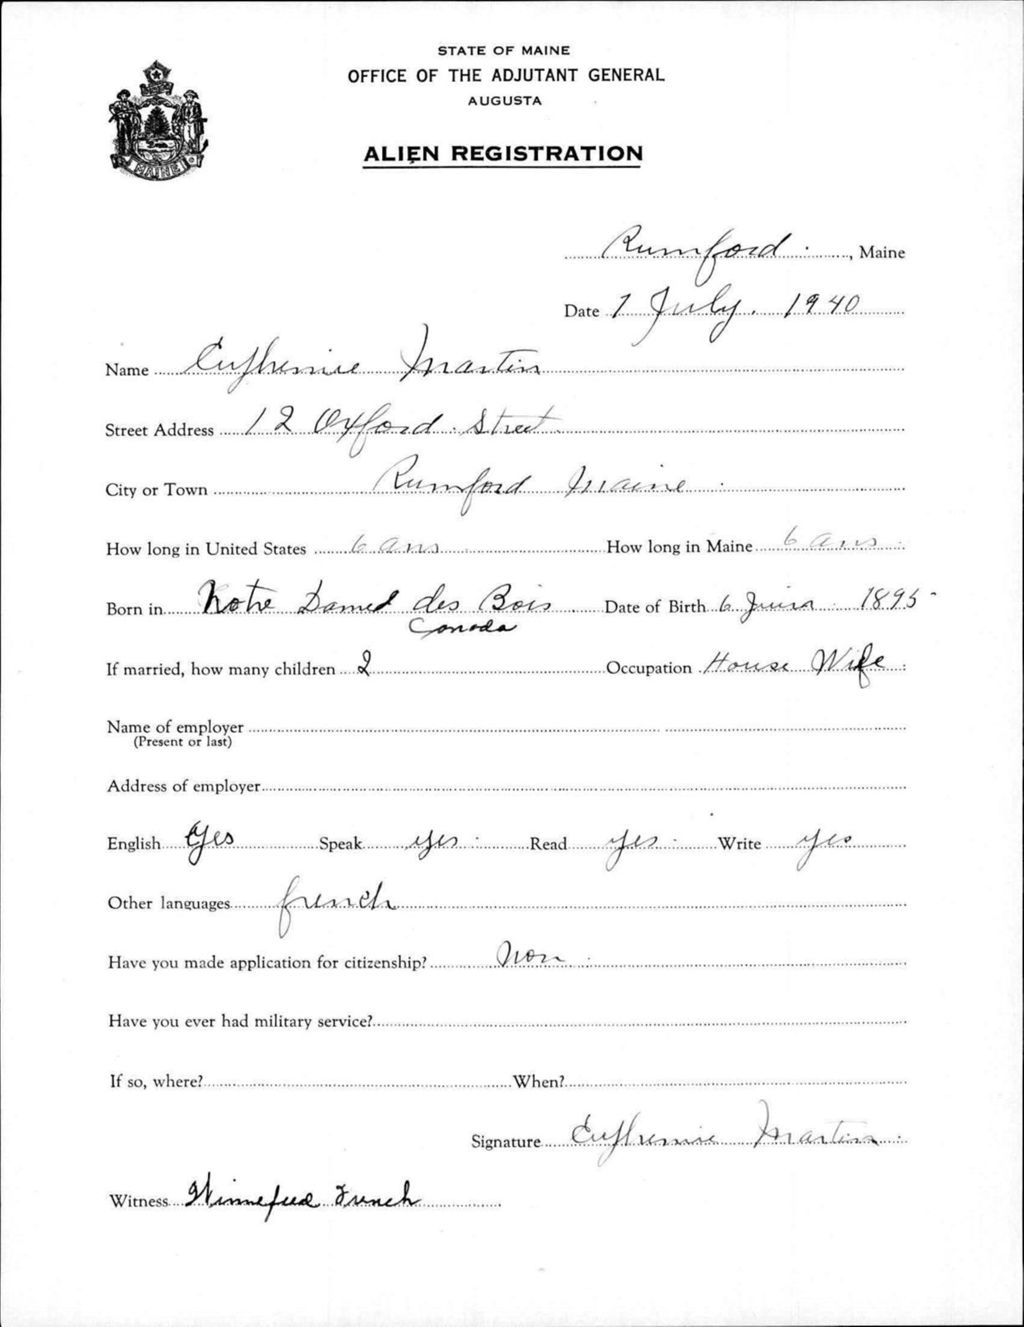 STATE OF MAINE
OFFICE OF THE ADJUTANT GENERAL
AUGUSTA
ALIEN REGISTRATION
MAINE
Rumford, Maine
Date 1 July. 1940
Name Euphemie Martin
Street Address 12 Oxford Street
City or Town Rumford Maine
How long in United States 6 ans How long in Maine 6 ans
Born in Notre Dame des Bois Date of Birth 6 1895
Canada
If married, how many children 2 Occupation House Wife
Name of employer
(Present or last)
Address of employer
English Yes Speak yes Read yes Write yes
Other languages french
Have you made application for citizenship? Non
Have you ever had military service?
If so, where? When?
Signature Euphemie Martin
Witness Winnefred French